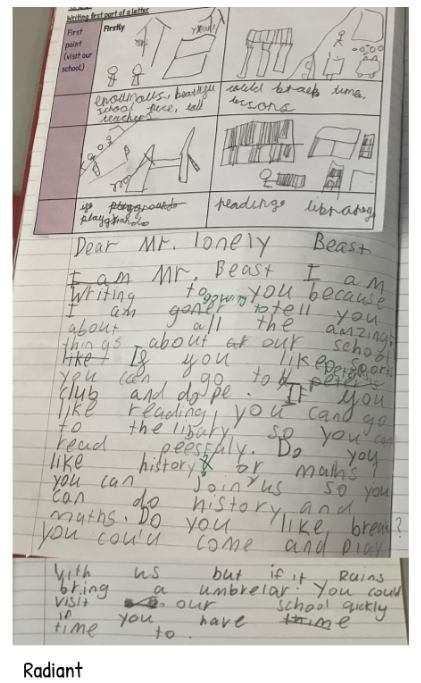 Writing first part of a letter
First point (visit our school)
Firstly
school
teachers
lessons
reading library
Dear Mr. lonely Beast
I am Mr. Beast I am
writing to you because
I am goner to tell you
about all the amzing
things about at our school
like I If you like sports
you can go to
club and do pe. If you
like reading, you can go
to the libary so you can
read peesfuly. Do you
like history or maths?
you can join us so you
can do history and
maths. Do you like break?
you could come and play
with us but if it Rains
bring a umbrelar. You could
visit our school quickly
if you have time
time to.
Radiant